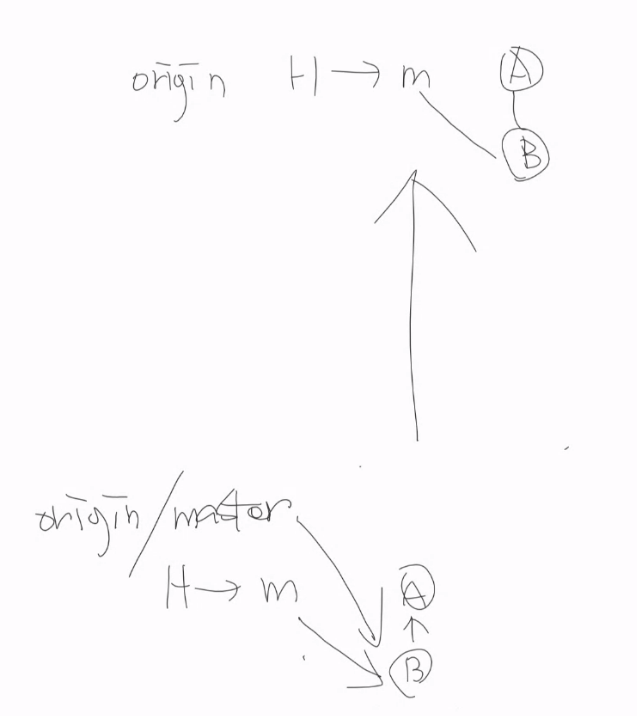 origin H → m A
B
origin/master
H → m A
B